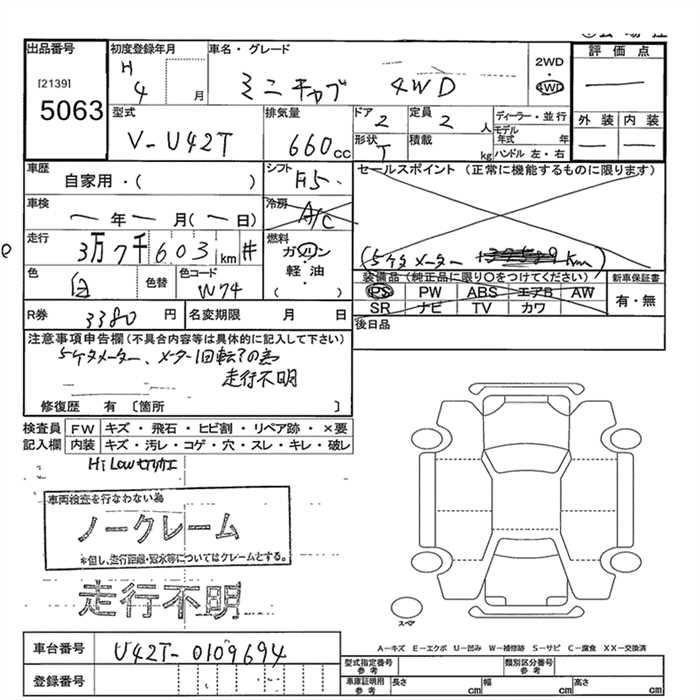 出品番号
[2139]
5063
初度登録年月
H
4 月
車名・グレード
ミニキャブ 4WD
2WD
・
4WD
評価点
外装 内装
型式
V-U42T
排気量
660 cc
ドア
2
定員
2 人
ディーラー・並行
モデル年式 年
ハンドル 左・右
形状
T
積載
kg
車歴
自家用・( )
シフト
F5
セールスポイント(正常に機能するものに限ります)
車検
年 月( 日)
冷房
A/C
走行
3万7千603 km #
燃料
ガソリン
軽油・
( )
(5ケタメーター km)
色
白
色替
色コード
W74
装備品(純正品に限り○をつけてください)
PS PW ABS エアB AW
SR ナビ TV カワ
新車保証書
有・無
R券
3380 円
名変期限 月 日
後日品
注意事項申告欄(不具合内容等は具体的に記入して下さい)
5ケタメーター、メーター1回転?の為
走行不明
修復歴 有〔箇所 〕
検査員 FW キズ・飛石・ヒビ割・リペア跡・×要
記入欄 内装 キズ・汚レ・コゲ・穴・スレ・キレ・破レ
Hi Low
車両検査を行なわない為
ノークレーム
*但し、走行距離・冠水等についてはクレームとする。
走行不明
スペア
A-キズ E-エクボ U-凹み W-補修跡 S-サビ C-腐食 XX-交換済
車台番号
U42T-0109694
登録番号
型式指定番号
参考
類別区分番号
参考
車庫証明用
参考
長さ cm 幅 cm 高さ cm